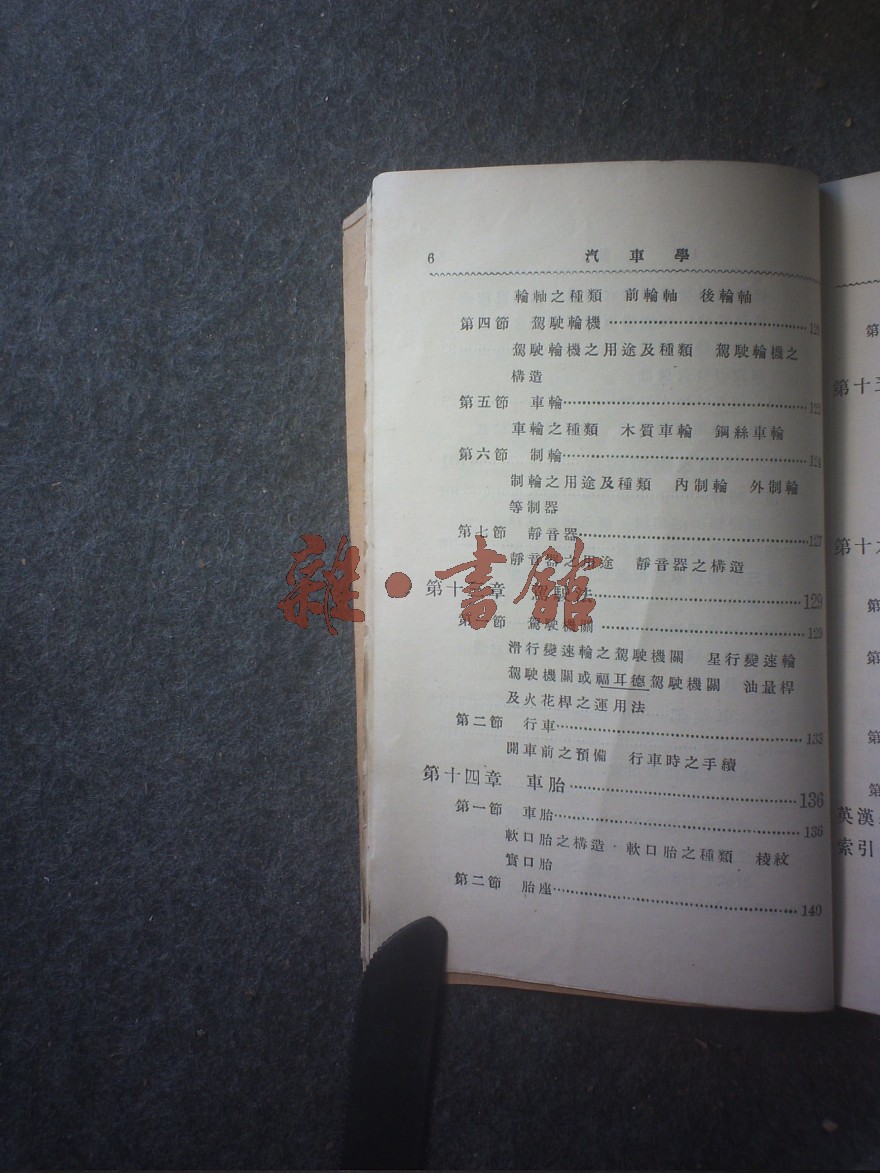 6 汽車學
輪軸之種類 前輪軸 後輪軸
第四節 駕駛輪機
駕駛輪機之用途及種類 駕駛輪機之
構造
第五節 車輪
車輪之種類 木質車輪 鋼絲車輪
第六節 制輪 124
制輪之用途及種類 內制輪 外制輪
等制器
第七節 靜音器 127
靜音器之用途 靜音器之構造
第十 章 駕駛法 129
第 節 駕駛機關 129
滑行變速輪之駕駛機關 星行變速輪
駕駛機關或福耳德駕駛機關 油量桿
及火花桿之運用法
第二節 行車 133
開車前之預備 行車時之手續
第十四章 車胎 136
第一節 車胎 136
軟口胎之構造 軟口胎之種類 棱紋
實口胎
第二節 胎座 140
雜·書館
第
第十
第十
第
第
第
第
英漢
索引